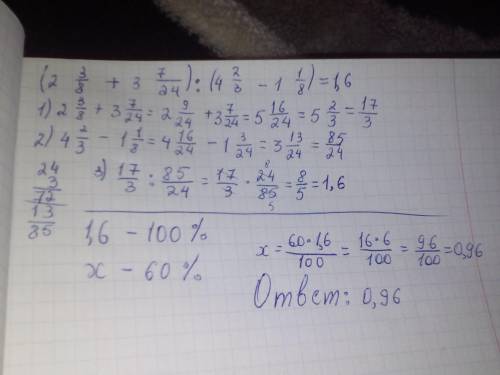 (2 3/8 + 3 7/24) : (4 2/3 - 1 1/8) = 1,6
1) 2 3/8 + 3 7/24 = 2 9/24 + 3 7/24 = 5 16/24 = 5 2/3 = 17/3
2) 4 2/3 - 1 1/8 = 4 16/24 - 1 3/24 = 3 13/24 = 85/24
3) 17/3 : 85/24 = 17/3 · 24/85 = 8/5 = 1,6
24
3
72
13
85
1,6 - 100%
x - 60%
x = 60·1,6/100 = 16·6/100 = 96/100 = 0,96
Ответ: 0,96